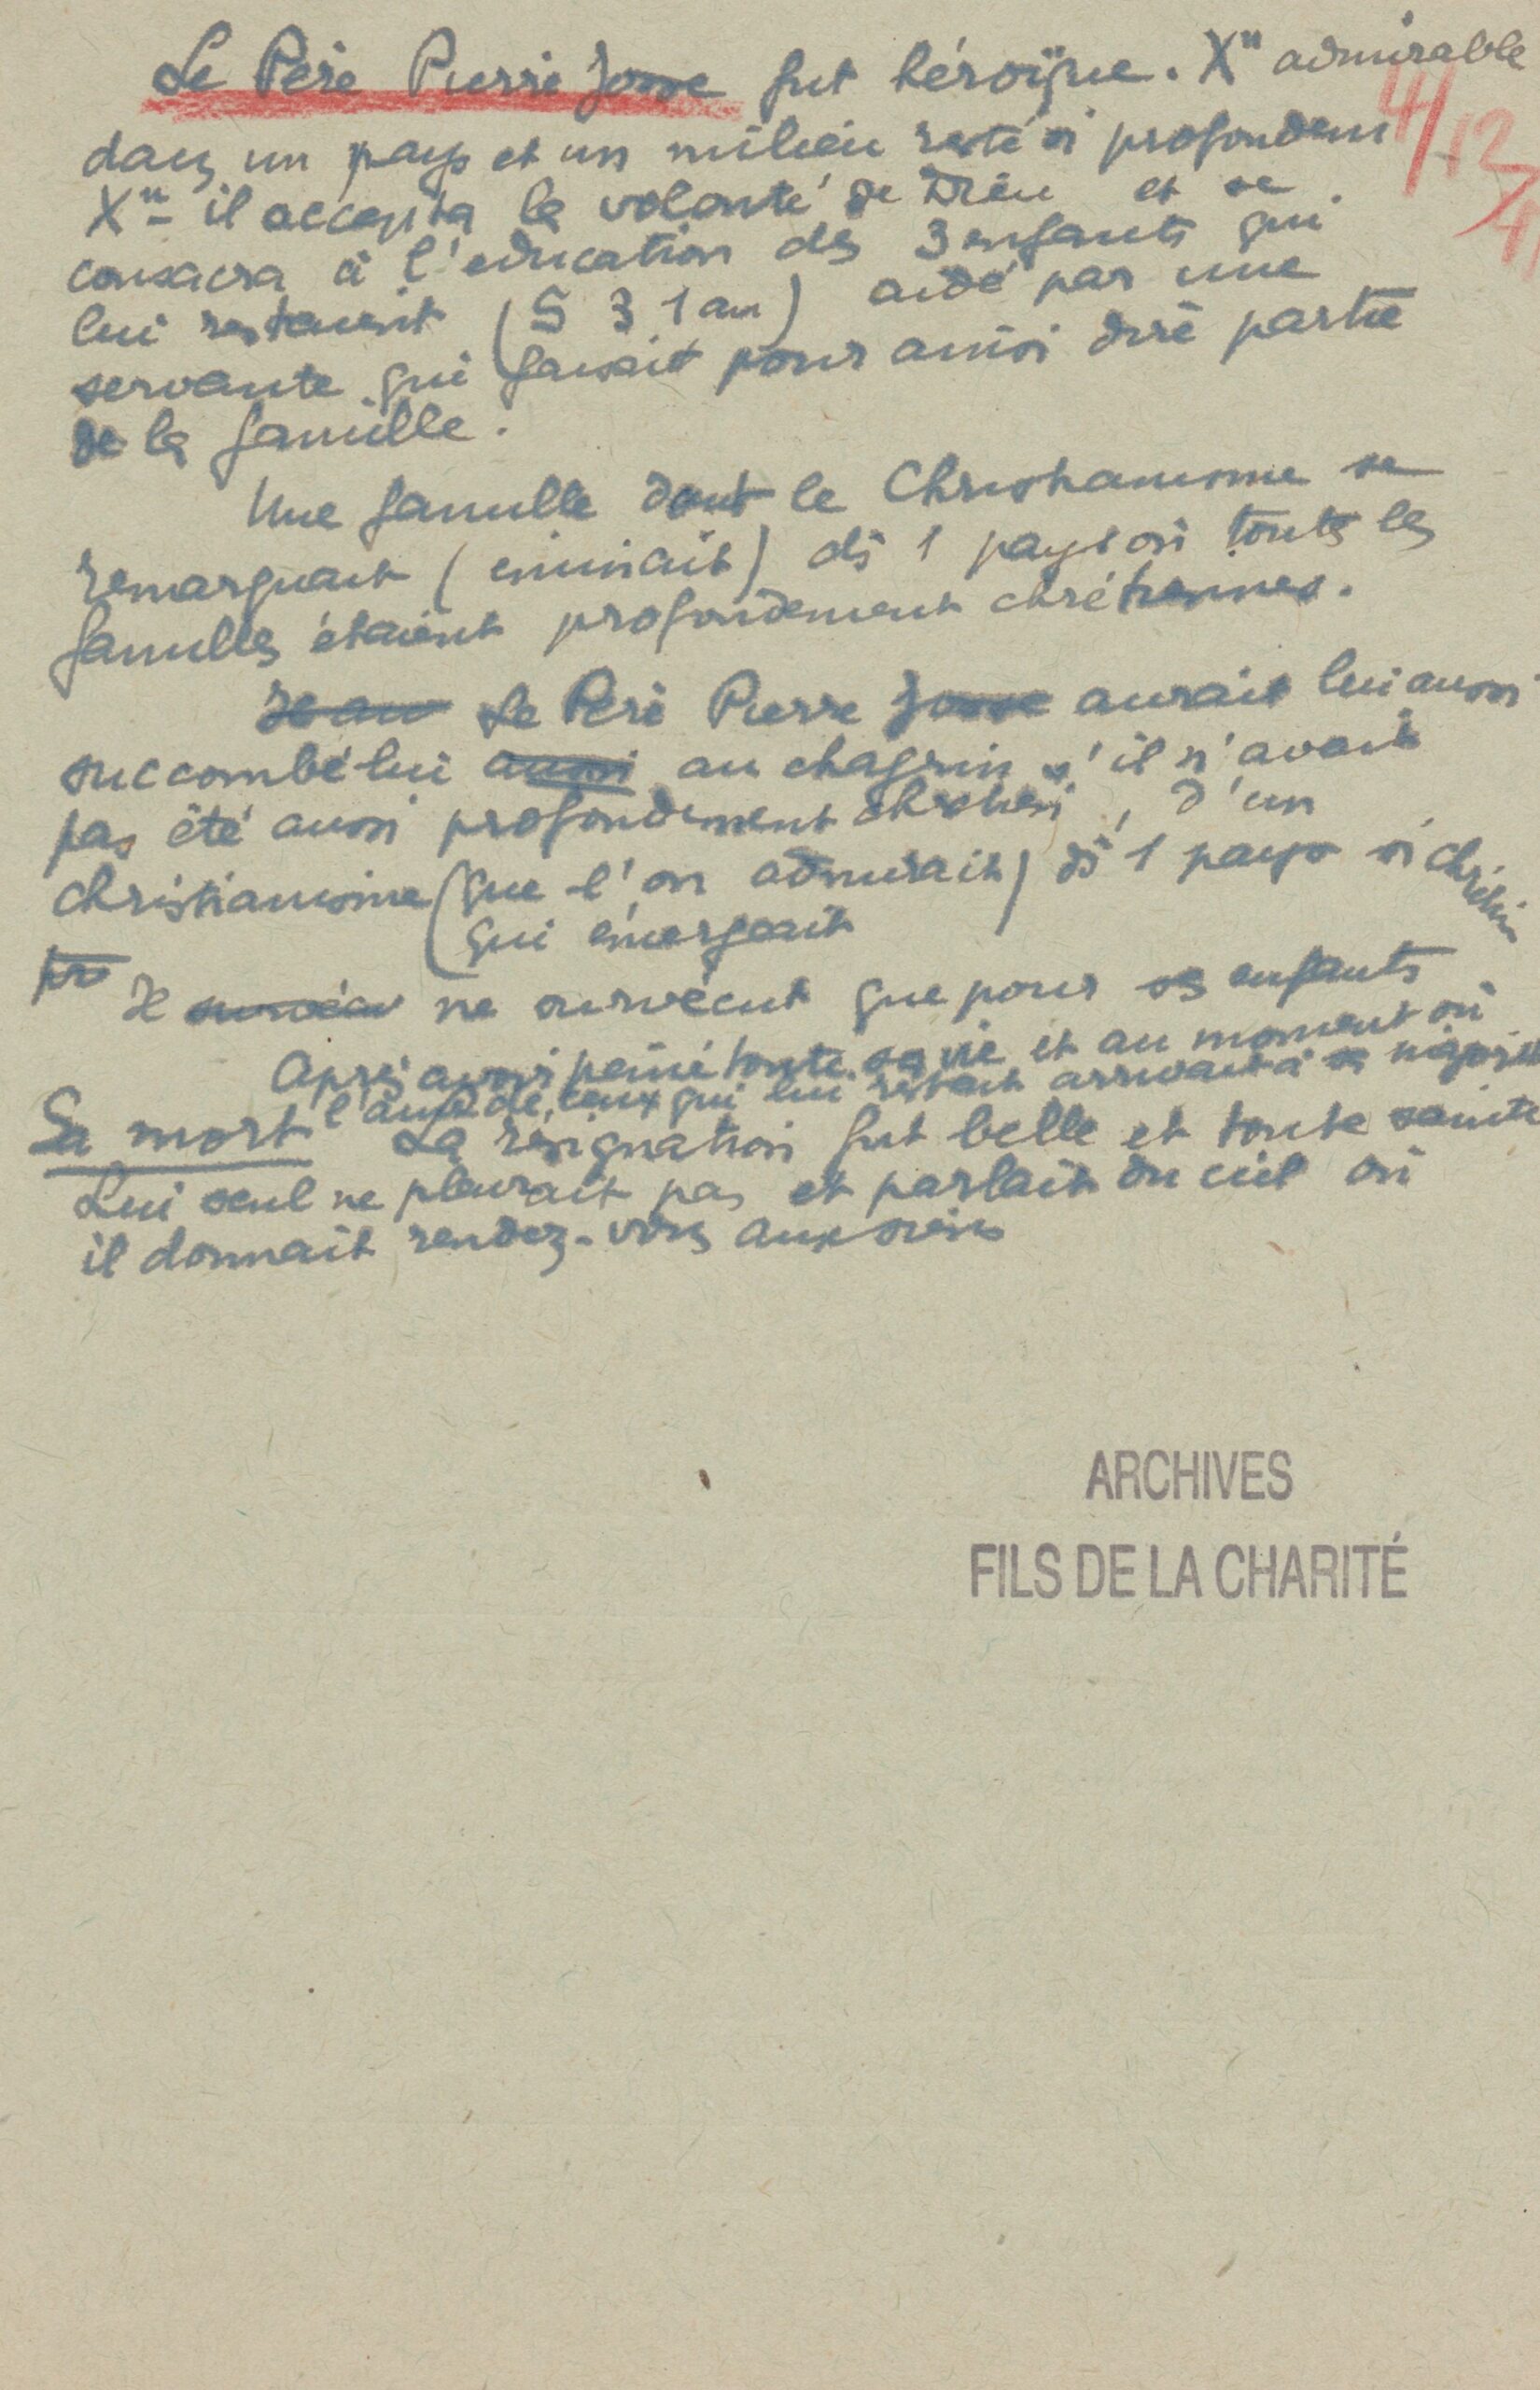 Le Père Pierre Josse fut héroïque. Xn admirable
4/12/41
dans un pays et un milieu resté si profondem
Xn - il accepta la volonté de Dieu et se
consacra à l'education des 3 enfants qui
lui restaient (5 3 1 an) aidé par une
servante qui faisait pour ainsi dire partie
de la famille.
Une famille dont le Christianisme se
remarquait ( ) ds 1 pays où toutes les
familles étaient profondement chrétiennes.
Jean Le Père Pierre Josse aurait lui aussi
succombé lui aussi au chagrin s'il n'avait
pas été aussi profondement chretien, d'un
christianisme (que l'on admirait) ds 1 pays si chrétien
(qui émergeait
pr Il survécu ne survécut que pour ses enfants
Après avoir peiné toute sa vie et au moment où
l'ainé de ceux qui lui restait arrivait à sa majorité
Sa mort La résignation fut belle et toute sainte
Lui seul ne pleurait pas et parlait du ciel où
il donnait rendez-vous aux siens
ARCHIVES
FILS DE LA CHARITÉ